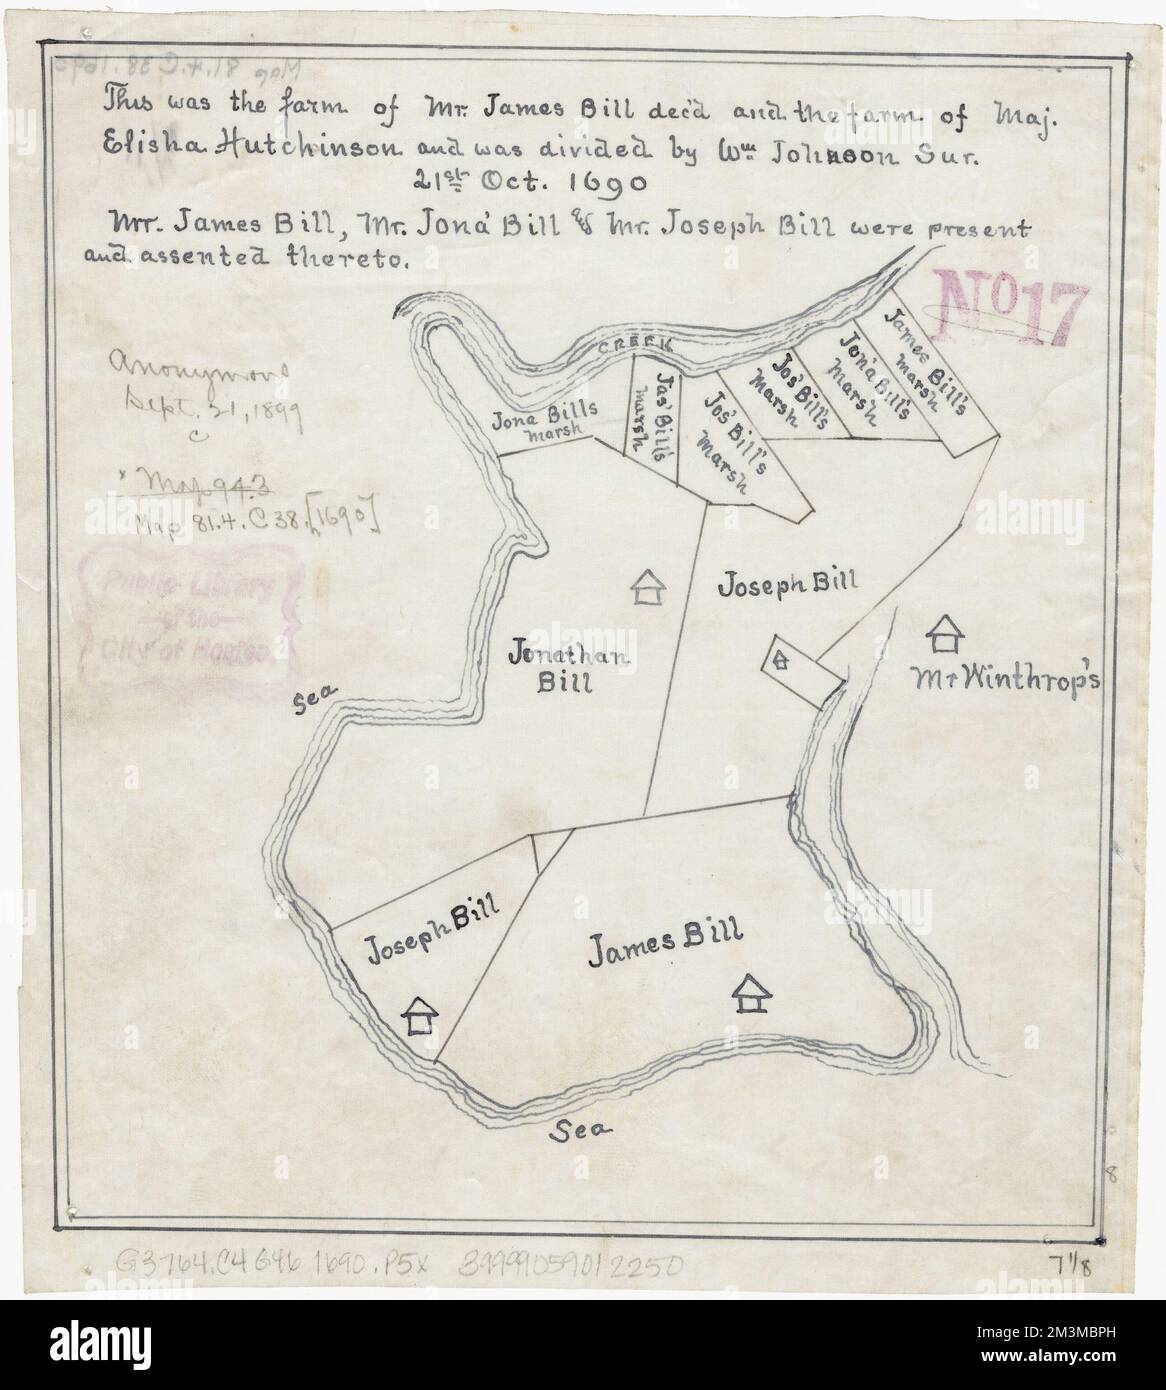 Map 81.4.C 38.1690
This was the farm of Mr. James Bill dec'd and the farm of Maj.
Elisha Hutchinson and was divided by Wm Johnson Sur.
21st Oct. 1690
Mr. James Bill, Mr. Jona' Bill & Mr. Joseph Bill were present
and assented thereto.
No 17
CREEK
James Bill's
marsh
Jona' Bill's
Marsh
Jos' Bill's
Marsh
Jas' Bill's
marsh
Jos' Bill's
Marsh
Jona Bills
marsh
Anonymous
Sept. 21, 1899
C
x Map 94.3
Map 81.4.C38.[1690]
Public Library
of the
City of Boston
Joseph Bill
Jonathan
Bill
Mr Winthrop's
Sea
Joseph Bill
James Bill
Sea
8
G3764.C4G46 1690.P5x 39999059012250
7 1/8
alamy
Image ID: 2M3MBPH
www.alamy.com